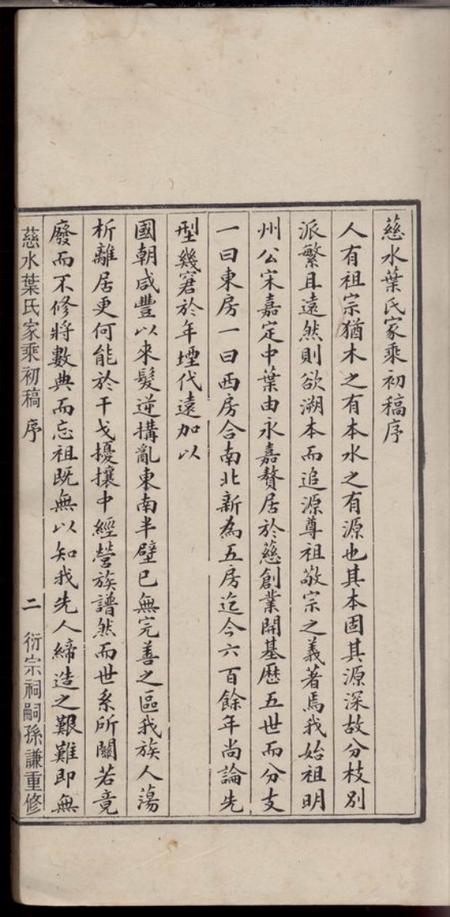 慈水葉氏家乘初稿序
人有祖宗猶木之有本水之有源也其本固其源深故分枝別
派繁且遠然則欲溯本而追源尊祖敬宗之義著焉我始祖明
州公宋嘉定中葉由永嘉贅居於慈創業開基歷五世而分支
一曰東房一曰西房合南北新為五房迄今六百餘年尚論先
型幾窘於年堙代遠加以
國朝咸豐以來髮逆搆亂東南半壁已無完善之區我族人蕩
析離居更何能於干戈擾攘中經營族譜然而世系所關若竟
廢而不修將數典而忘祖既無以知我先人締造之艱難即無
慈水葉氏家乘初稿 序 二 衍宗祠嗣孫謙重修